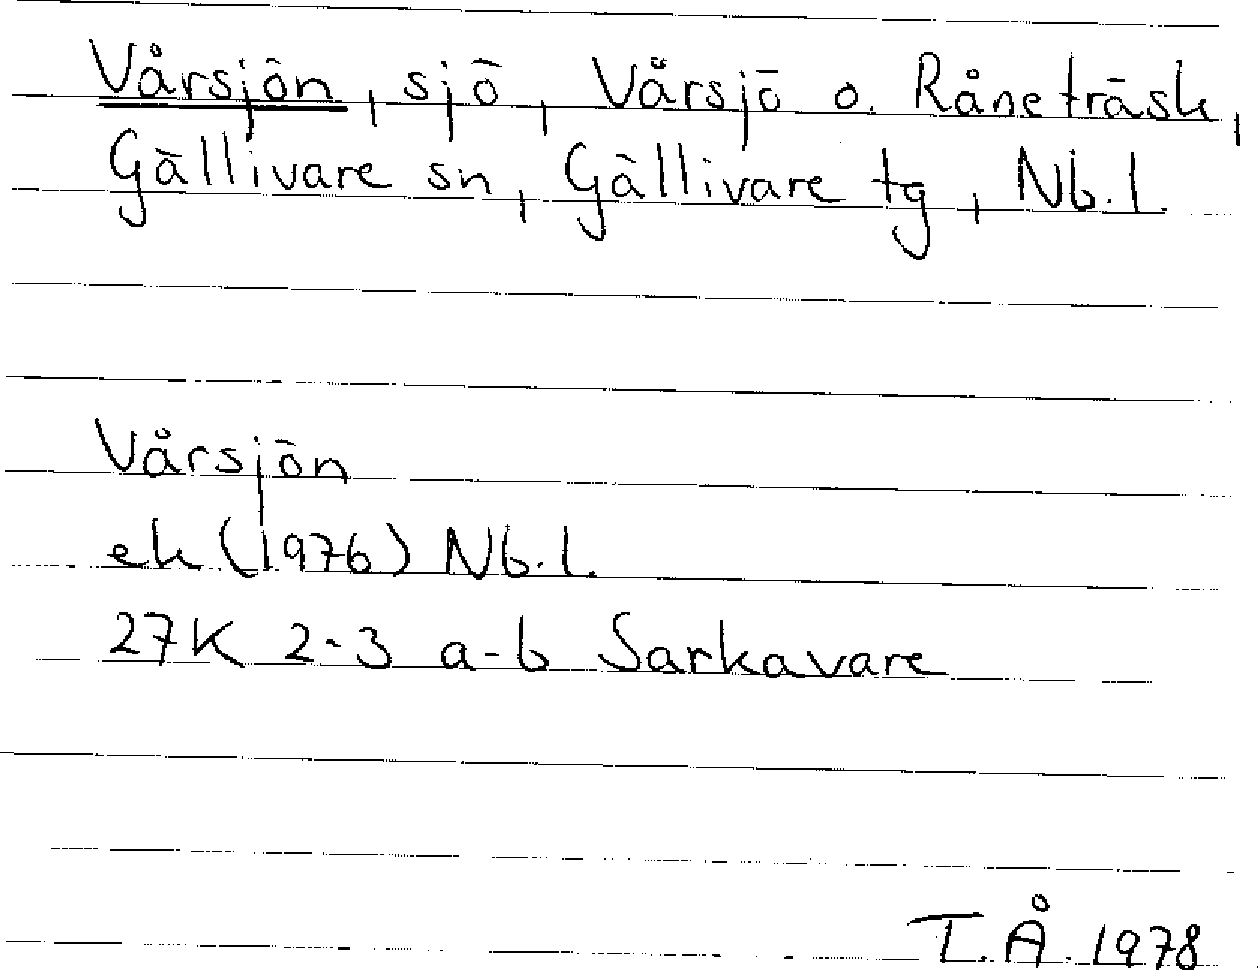 Vårsjön, sjö, Vårsjö o. Råneträsk,
Gällivare sn, Gällivare tg, Nb.l.
Vårsjön
ek (1976) Nb.l.
27K 2-3 a-b Sarkavare
T.Å. 1978